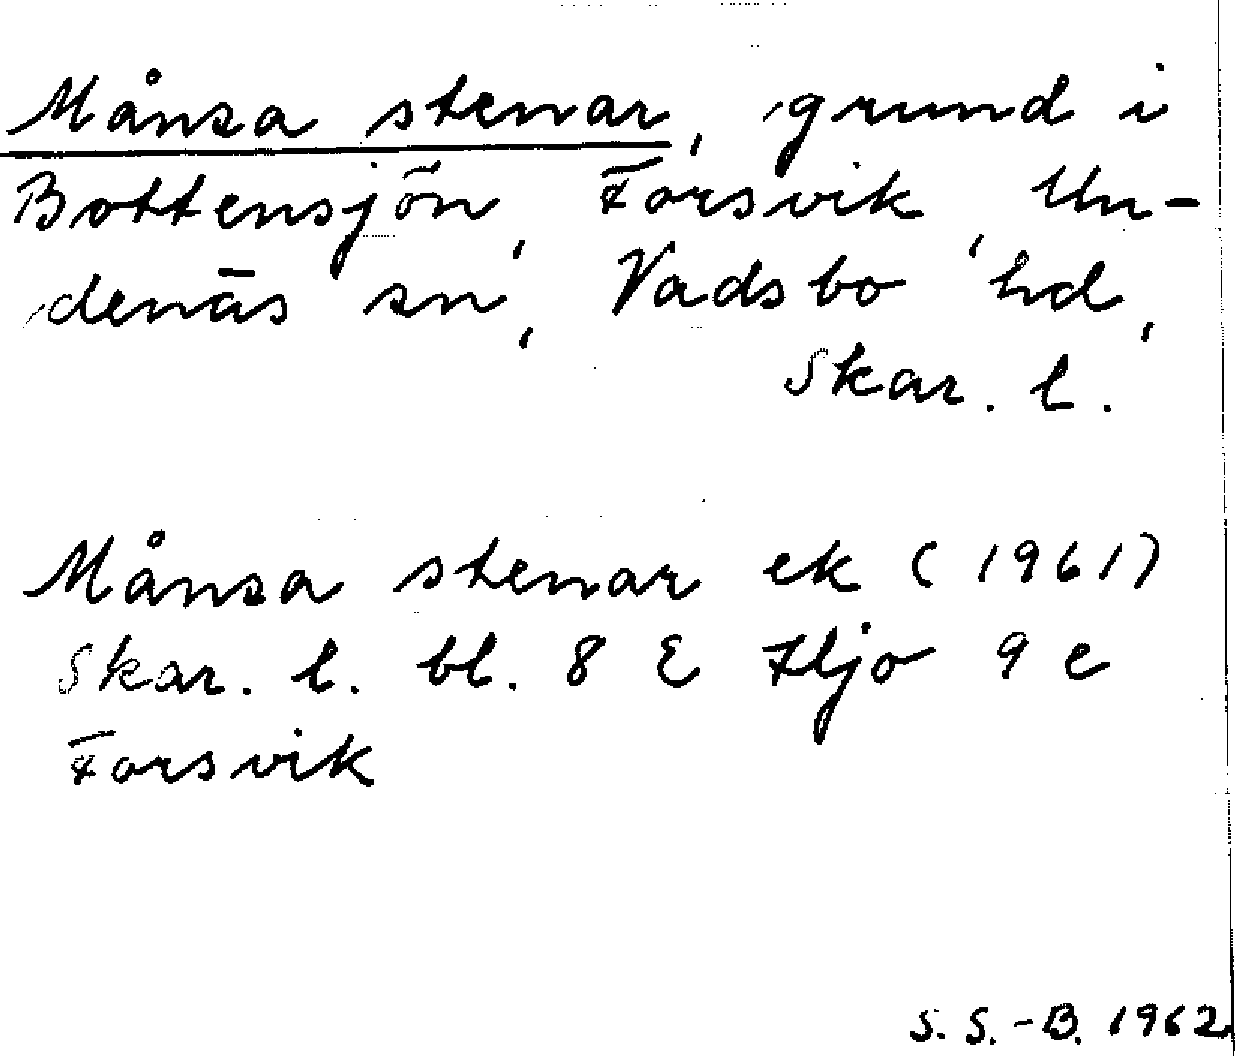 Månsa stenar, grund i
Bottensjön, Forsvik, Un-
denäs sn, Vadsbo hd,
Skar. l.
Månsa stenar ek (1961)
Skar. l. bl. 8 E Hjo 9 e
Forsvik
S. S.-B. 1962